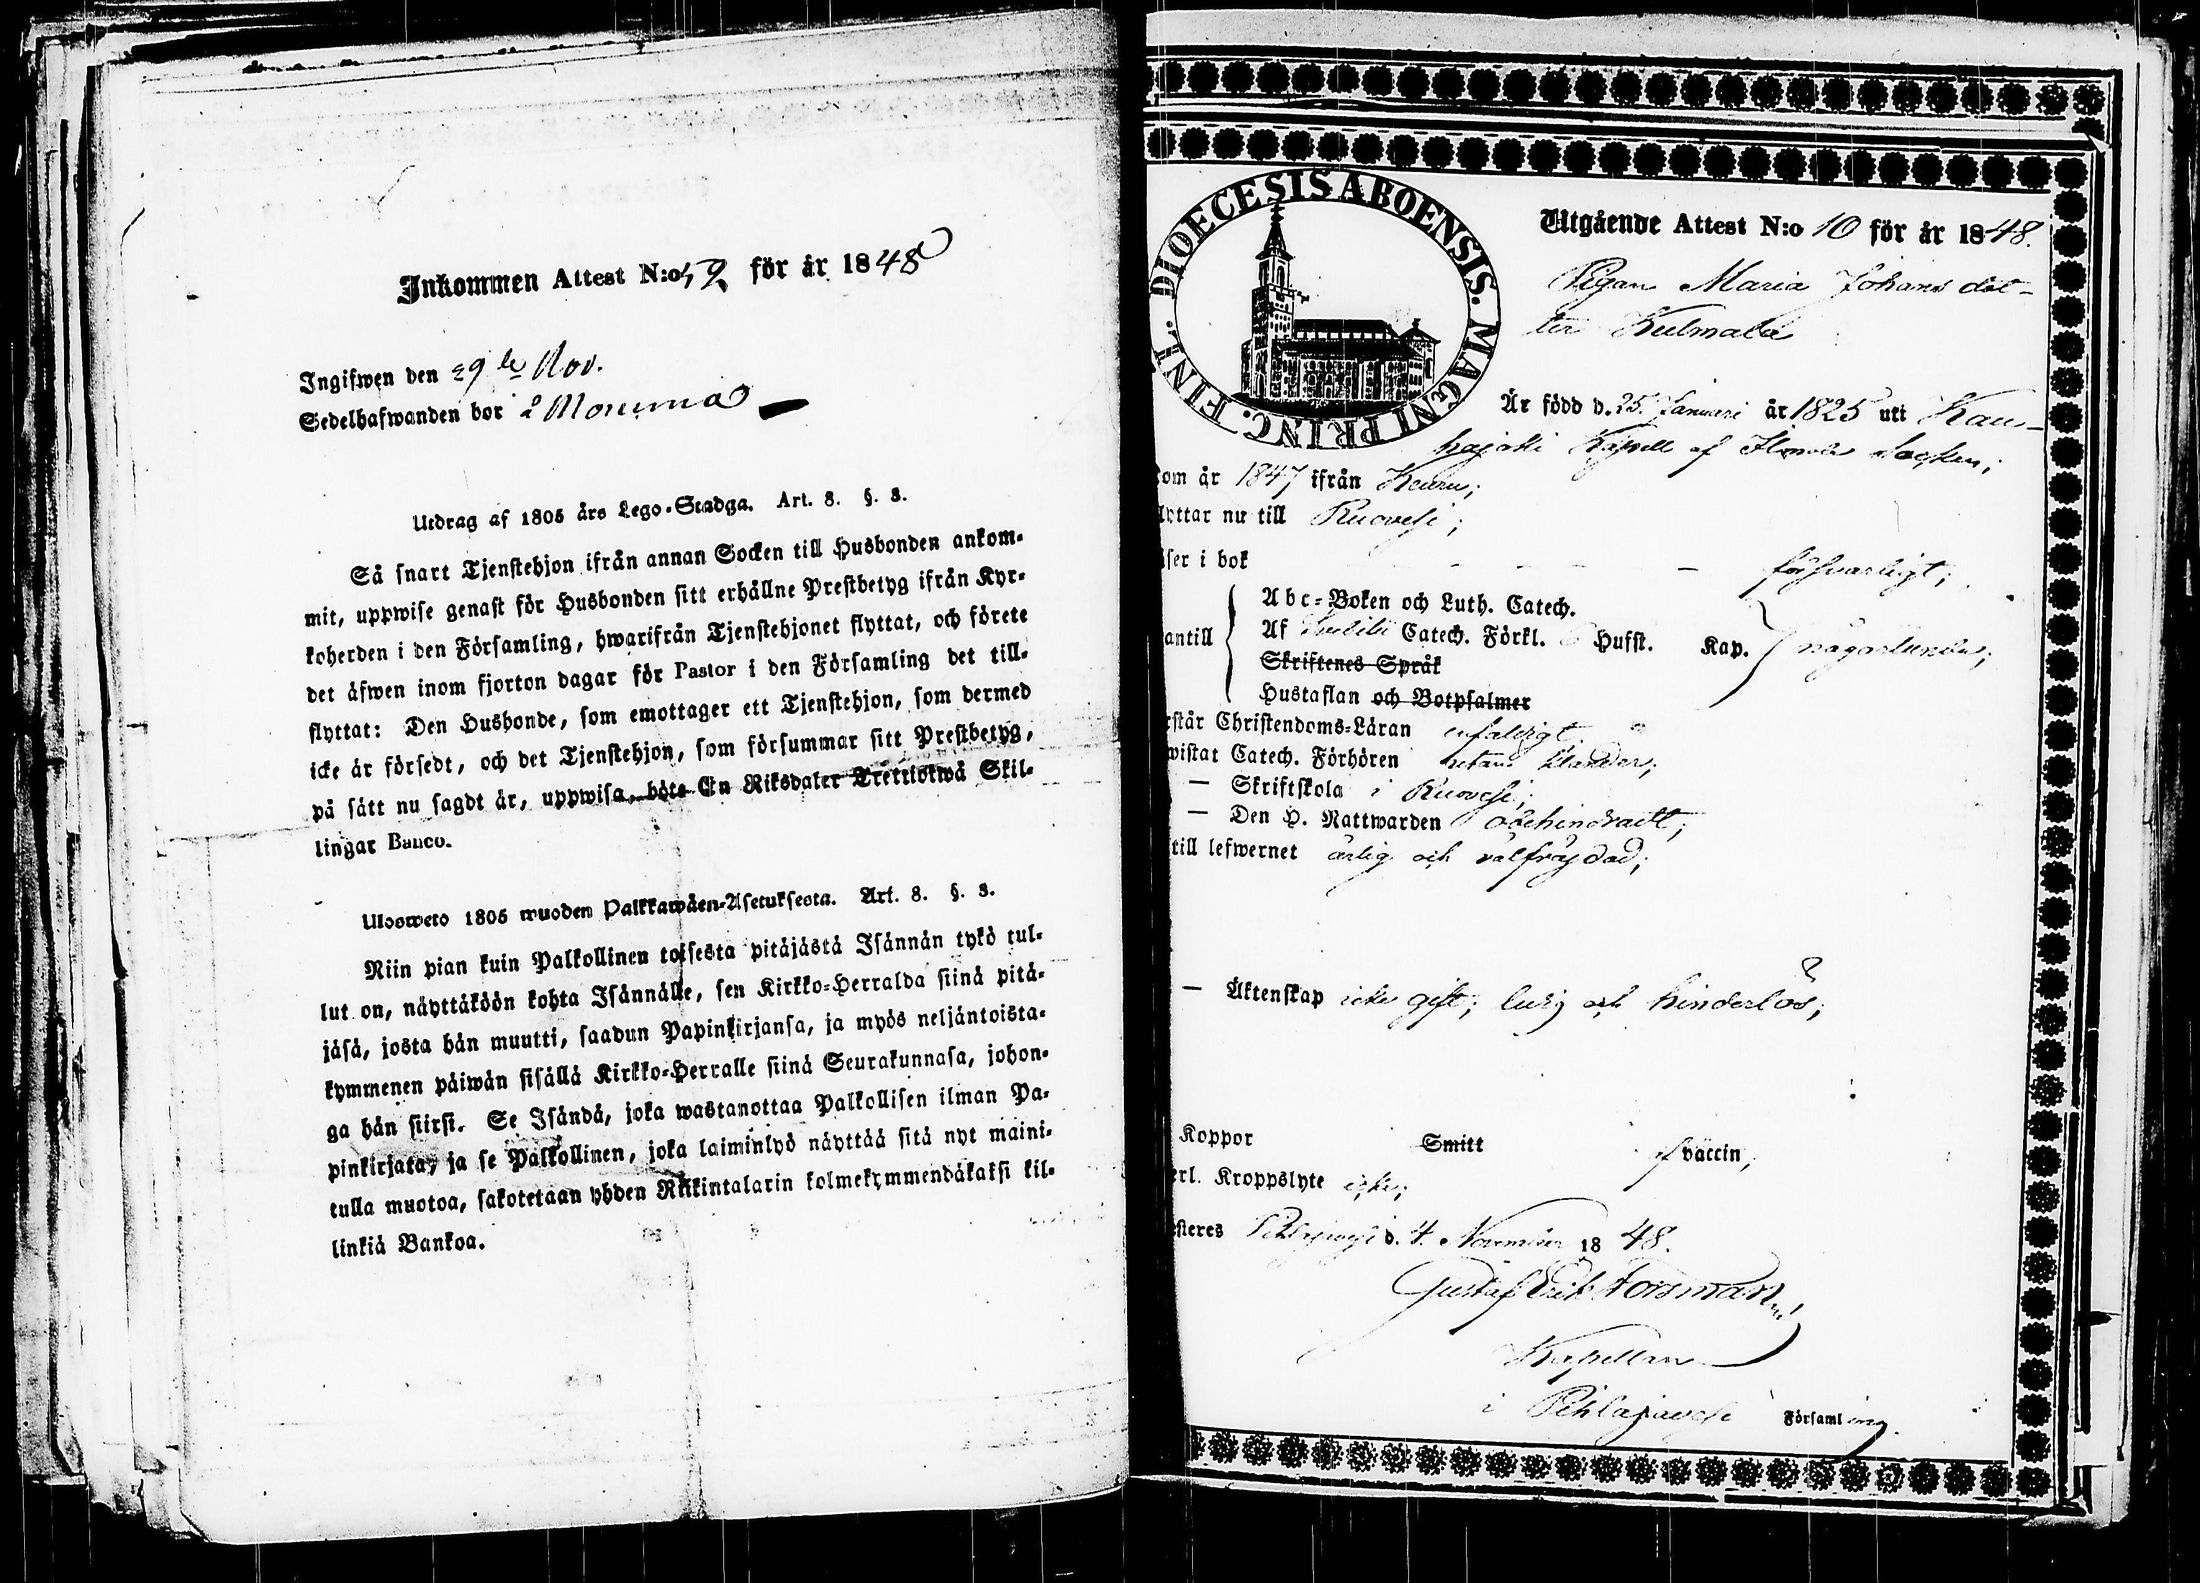 Inkommen Attest N:o 59 för år 1848
Ingifwen den 29de Nov.
Sedelhafwanden bor 2 Mommas
Utdrag af 1805 års Lego-Stadga. Art. 8. §. 3.
Så snart Tjenstehjon ifrån annan Socken till Husbonden ankom-
mit, uppwise genast för Husbonden sitt erhållne Prestbetyg ifrån Kyr-
koherden i den Församling, hwarifrån Tjenstehjonet flyttat, och förete
det äfwen inom fjorton dagar för Pastor i den Församling det till-
flyttat: Den Husbonde, som emottager ett Tjenstehjon, som dermed
icke är försedt, och det Tjenstehjon, som försummar sitt Prestbetyg,
på sätt nu sagdt är, uppwisa, böte En Riksdaler Trettiotwå Skil-
lingar Banco.
Ulosweto 1805 wuoden Palkkawäen-Asetuksesta. Art. 8. §. 3.
Niin pian kuin Palkollinen toisesta pitäjästä Isännän tykö tul-
lut on, näyttäköön kohta Isännälle, sen Kirkko-Herralda siinä pitä-
jäsä, josta hän muutti, saadun Papinkirjansa, ja myös neljäntoista-
kymmenen päiwän sisällä Kirkko-Herralle siinä Seurakunnasa, johon-
ga hän siirsi. Se Isändä, joka wastanottaa Palkollisen ilman Pa-
pinkirjata, ja se Palkollinen, joka laiminlyö näyttää sitä nyt maini-
tulla muotoa, sakotetaan yhden Riikintalarin kolmekymmendäkaksi kil-
linkiä Bankoa.
DIOECESIS ABOENSIS. MAGNI PRINC. FINL.
Utgående Attest N:o 10 för år 1848.
Pigan Maria Johansdot-
ter Kulmala
Är född d. 25. Januari år 1825 uti Kau-
hajoki Kapell af Ilmola Socken;
kom år 1847 ifrån Keuru;
lyttar nu till Ruovesi;
äser i bok - - - - - försvarligt;
Abc-Boken och Luth. Catech.
antill Af Svebilii Catech. Förkl. Husst. Kap. någorlunda;
Skriftenes Språk
Hustaflan och Botpsalmer
rstår Christendoms-Läran enfaldigt.
wistat Catech. Förhören utan klander;
— Skriftskola i Ruovesi;
— Den H. Nattwarden obehindradt;
till lefwernet ärlig och välfrägdad;
— Äktenskap icke gift; ledig och hinderlös;
Koppor Smitt af väccin;
erl. Kroppslyte icke;
esteres Pihlajavesi d. 4. November 1848.
Gustaf Erik Forsman
Kapellan
i Pihlajavesi Församling.